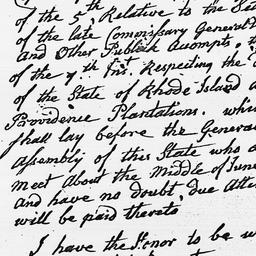 of the 5th, Relative to the
of the late Commissary General
And Other Publick Accompts,
of the 7th Inst. Respecting the
of the State of Rhode Island
Providence Plantations. which
shall lay before the General
Assembly of this State who
meet About the Middle of June
and have no doubt, due Atten
will be paid thereto,
I have the Honor to be